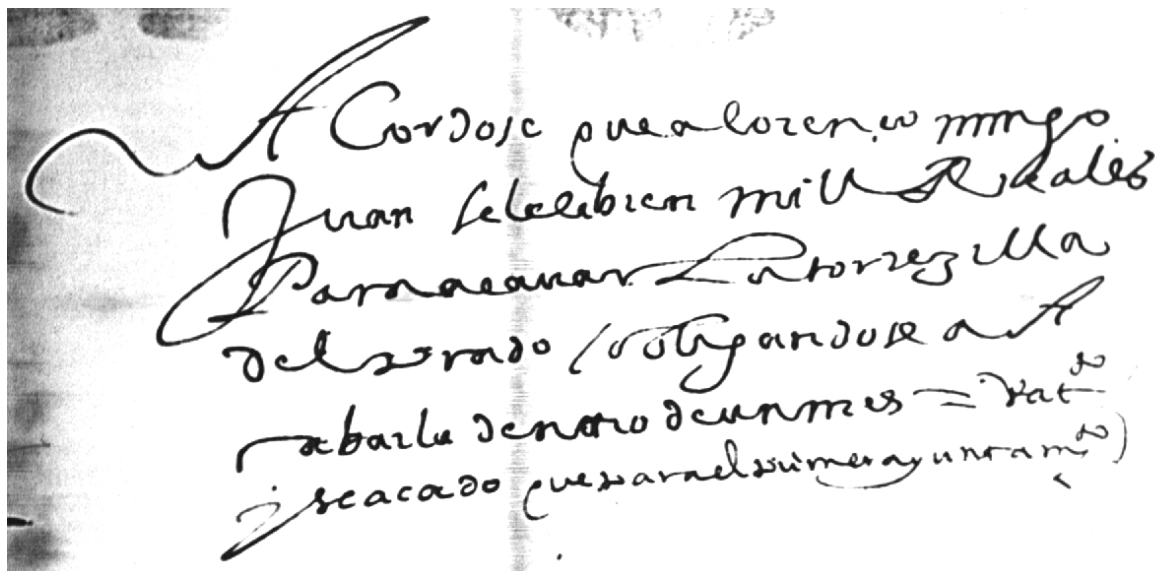 Acordose que a lorenço mingo
Juan se le libren mill Reales
Para acauar la torrezilla
del prado obligandose a A
cabarla dentro de un mes =
y acado que para el primer ayuntamto